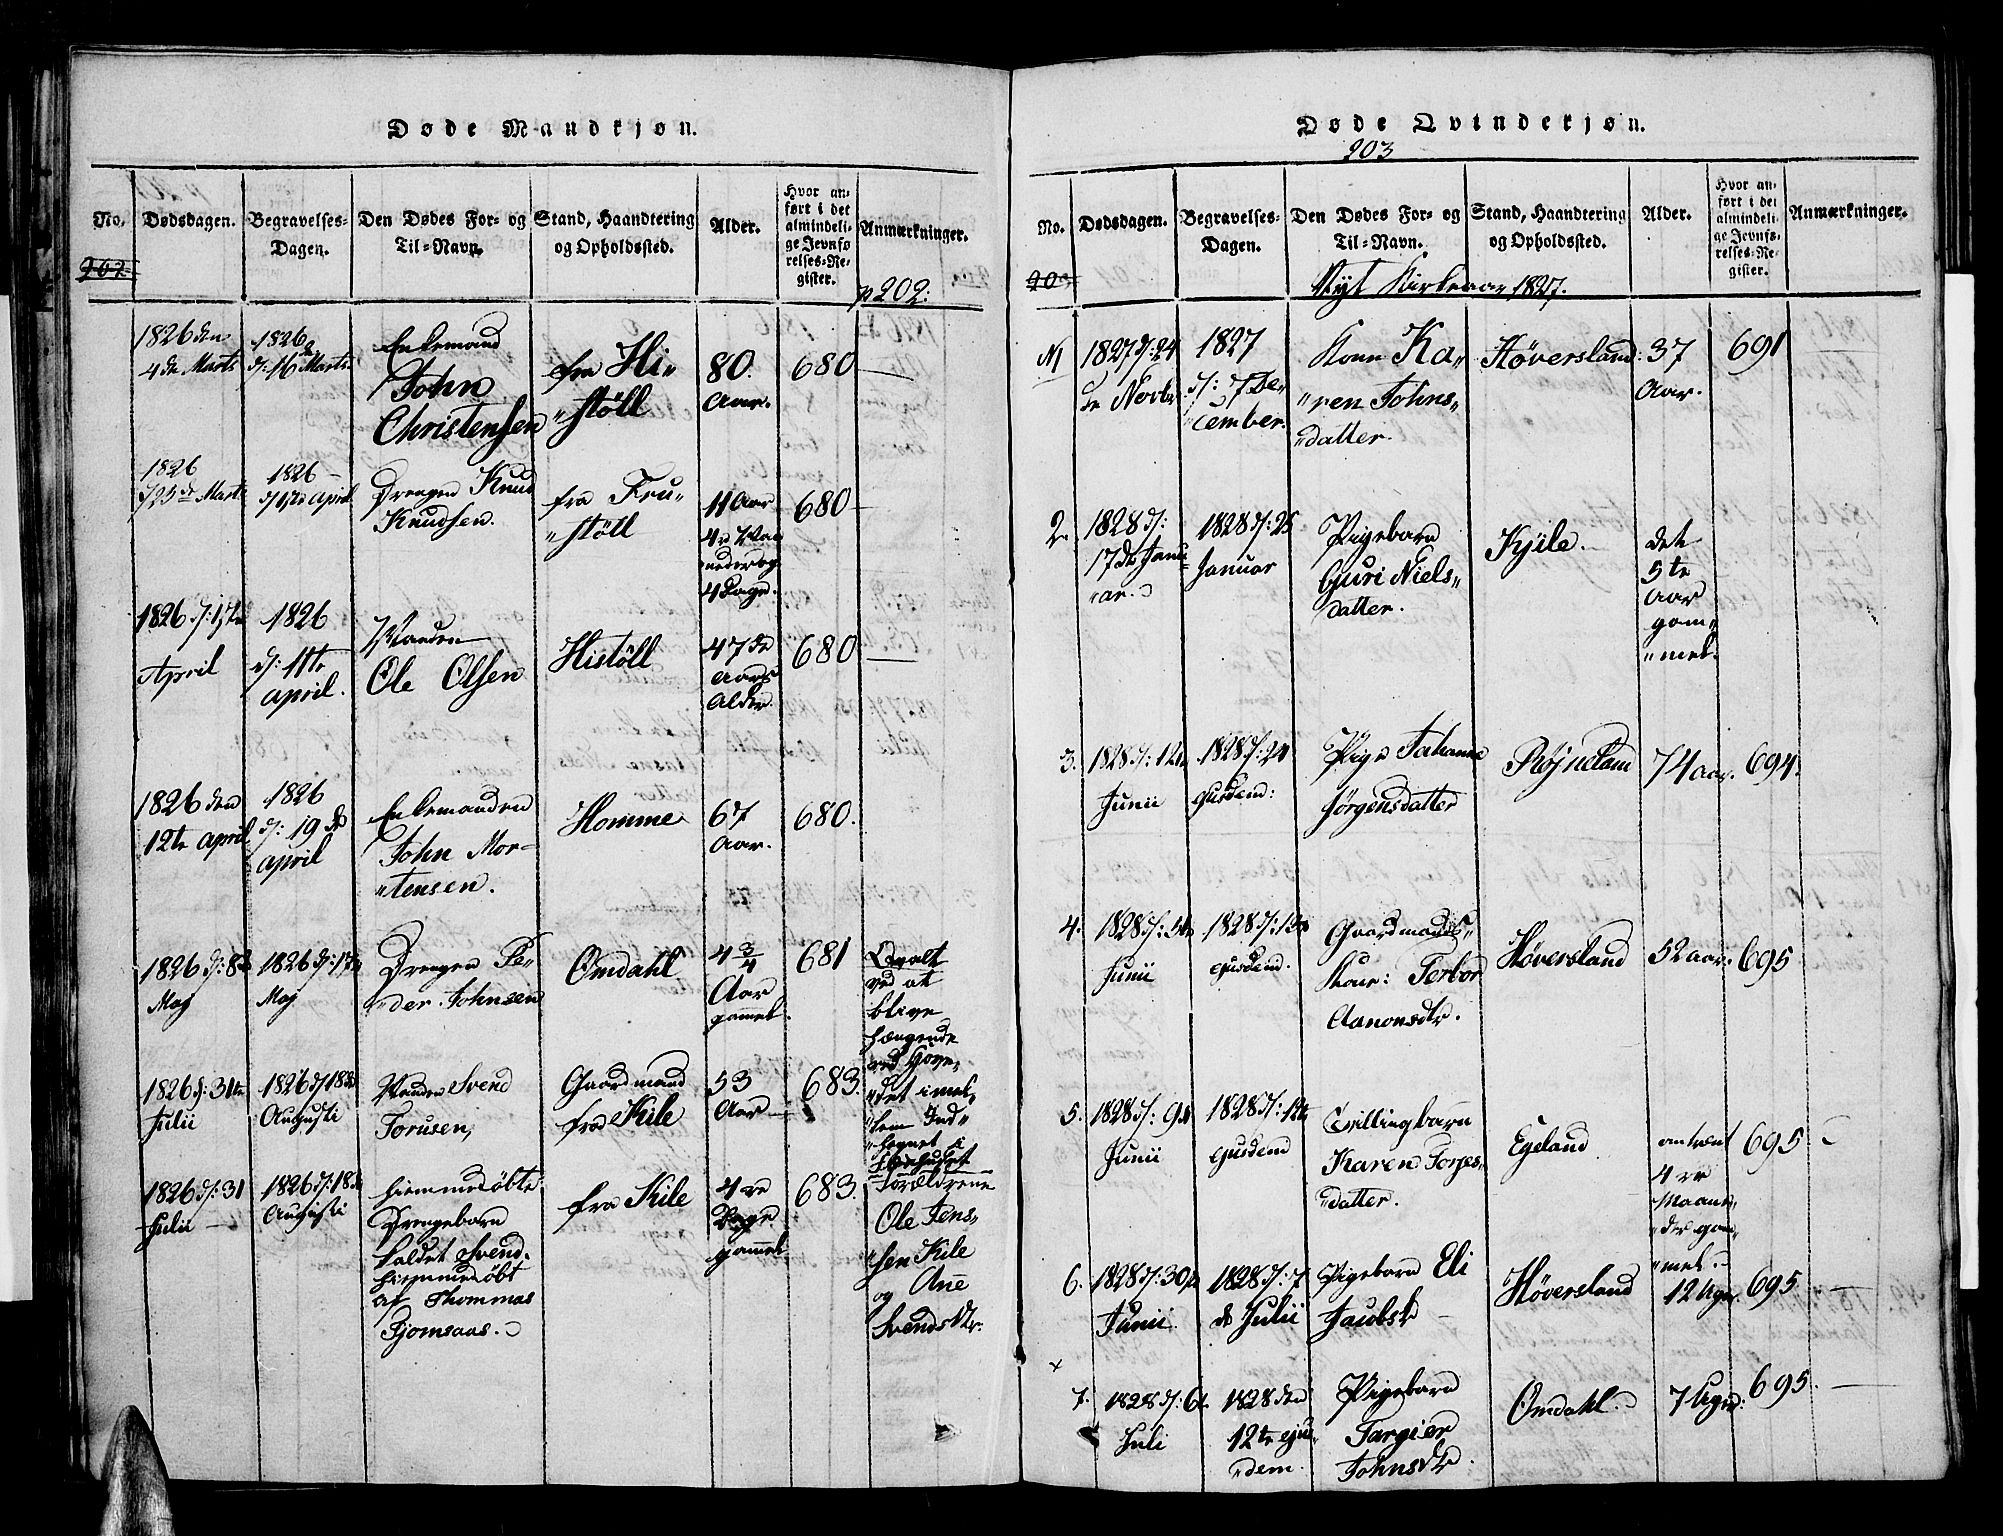 Døde Mandkjøn.
No.
Dødsdagen.
Begravelses-
Dagen.
Den Dødes For- og
Til-Navn.
Stand, Haandtering
og Opholdssted.
Alder.
Hvor an-
ført i det
almindeli-
ge Jevnfø
relses-Re-
gister.
Anmærkninger.
202
p 202:
1826 den
4de Marts
1826
d: 16 Marts
Enkemand
John
Christensen
fra Hi-
"stöll
80.
Aar.
680
1826
d 25de Marts
1826
April
Drengen Knud
Knudsen.
fra Fru"
"stöll
11 Aar
4re Maa
neder og
4 Dage.
680
1826 d:
April
1826
d: 11te
April.
Manden
Ole Olsen
Histöll
47de
Aars
Alder.
680
1826 den
12te April
1826
d: 19de
April
Enkemanden
John Mor-
"tensen.
Homme
67
Aar.
680.
1826 d: 8de
Maj
1826 d: 17de
Maj
Drengen Pe-
"der Johnsen
Omdahl
4 3/4
Aar
gammel.
681
Qvalt
ved at
blive
hængende
ved Hove,
"det imel,
"lem
1826 d: 31te
Julii
1826 d 18de
Augusti
Manden Svend
Torusen,
Gaardmand
fra Kile
53
Aar
683.
1826 d: 31
Julii
1826 d: 18de
Augusti
hiemmedöbte
Drengebarn
kaldet Svend.
hiemmedöbt
af Thommas
Gjomsaas.
fra Kile
4re
Dage
gammel
683.
Forældrene
Ole Jens,
"sen Kile
og Ane
Svends Dtr.
Døde Qvindekjøn.
203
No.
Dødsdagen.
Begravelses-
Dagen.
Den Dødes For- og
Til-Navn.
Stand, Haandtering
og Opholdssted.
Alder.
Hvor an-
ført i det
almindeli-
ge Jevnfø-
relses-Re-
gister.
Anmærkninger.
203
Nyt Kirkeaar 1827.
N1
1827 d: 24
de Novbr
1827
d: 7 De-
"cember.
Kone Ka-
"ren Johns,
"datter.
Höversland:
37
Aar.
691
2
1828 d:
17de Janu-
"ar.
1828 d: 25
Januar
Pigebarn
Guri Niels,
datter.
Kjile.
det
5te
Aar
gam,
"mel.
3.
1828 d: 12te
Junii
1828 d: 24
ejusdem:
Pige Johanne
Jörgensdatter
Röjneland
74 aar.
694.
4.
1828 d: 5te
Junii
1828 d: 13de
ejusdem.
Gaardmands,
kone: Terbor
Aanonsdtr.
Höversland
52 aar.
695
5.
1828 d: 9de
Junii
1828 d: 12te
ejusdem
Tvillingbarn
Karen Torjes,
"datter.
Egeland
omtrent
4re
Maane,
"der gam,
"mel.
695
6.
1828 d: 30te
Junii.
1828 d: 7
de Julii
Pigebarn Eli
Jacobsdr
Höversland
12 Uger.
695.
+
7.
1828 d: 6te
Juli
1828 den
12te ejus"
"dem.
Pigebarn
Targier
Johnsdtr.
Omdahl.
7 Uger:
695.